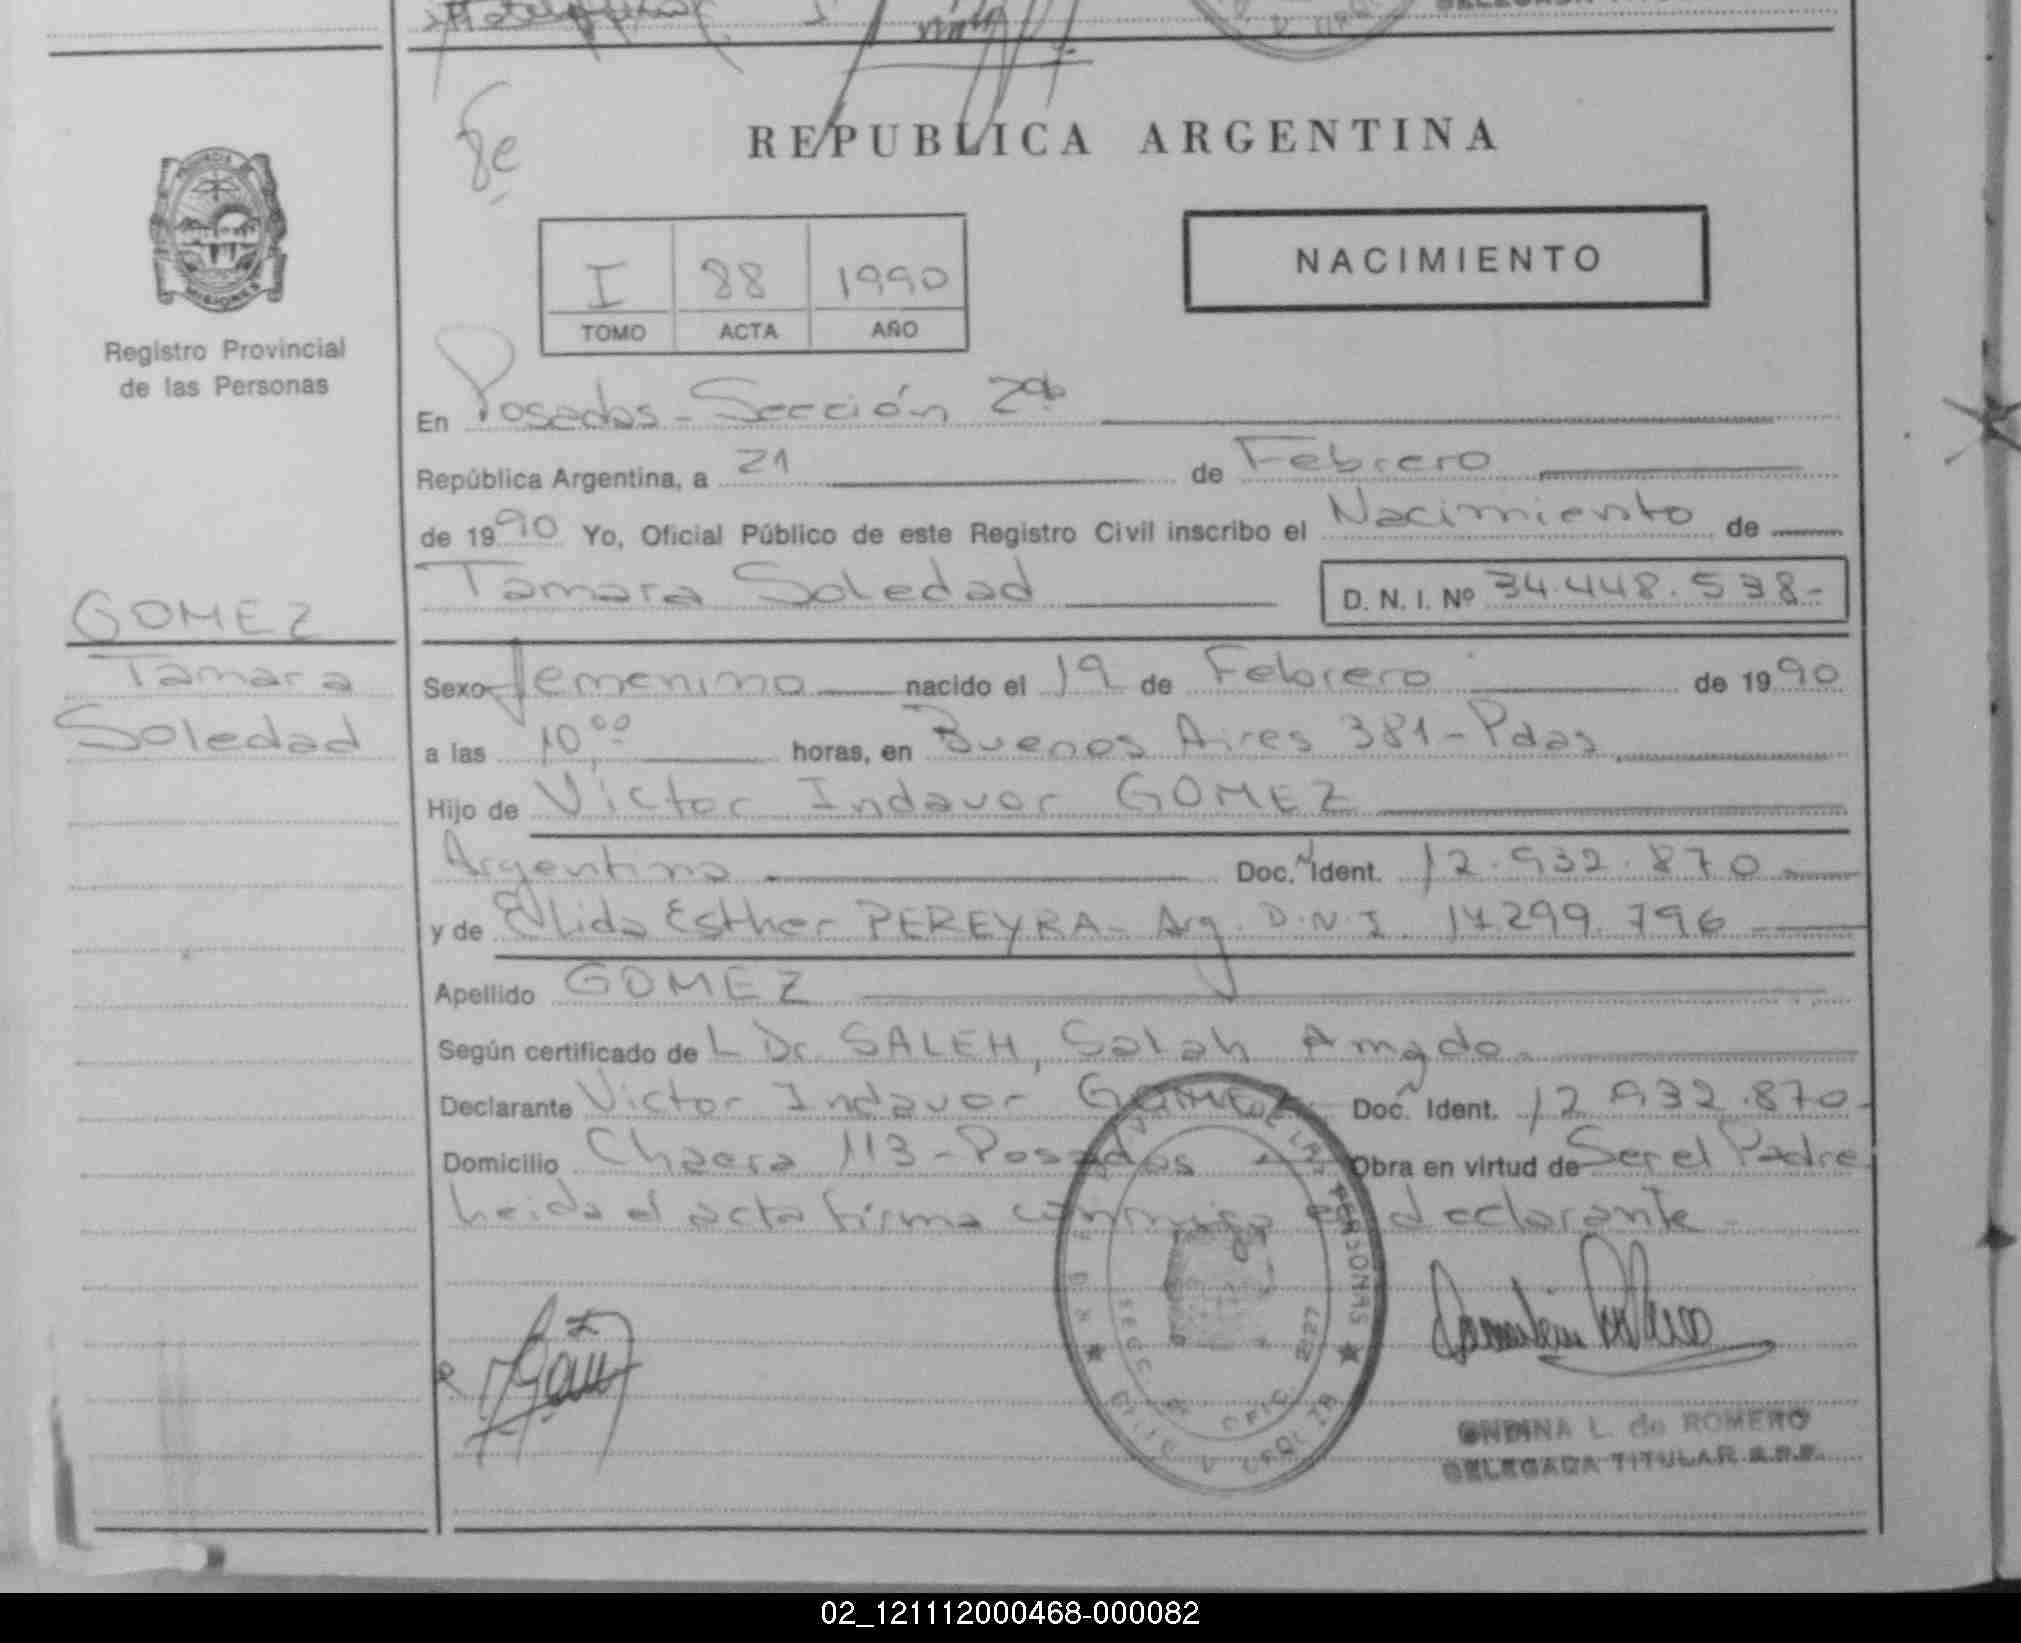 REPUBLICA ARGENTINA
NACIMIENTO
I 88 1990
TOMO ACTA AÑO
MISIONES
Registro Provincial
de las Personas
En Posadas - Sección 2da
República Argentina, a 21 de Febrero
de 1990 Yo, Oficial Público de este Registro Civil inscribo el Nacimiento de
Tamara Soledad D. N. I. Nº 34.448.538-
GOMEZ
Tamara
Soledad
Sexo femenino nacido el 19 de Febrero de 1990
a las 10,00 horas, en Buenos Aires 381 - Pdas
Hijo de Victor Indavor GOMEZ
Argentina Doc. Ident. 12.932.870
y de Elida Esther PEREYRA - Arg. D.N.I. 17.299.796
Apellido GOMEZ
Según certificado de L Dr. SALEH, Salah Amado.
Declarante Victor Indavor GOMEZ Doc. Ident. 12.932.870-
Domicilio Chacra 113 - Posadas - Obra en virtud de Ser el Padre
Leida el acta firma conmigo el declarante -
DE LAS PERSONAS
SECC OFIC 2227
ONDINA L. de ROMERO
DELEGADA TITULAR R.P.P.
02_121112000468-000082